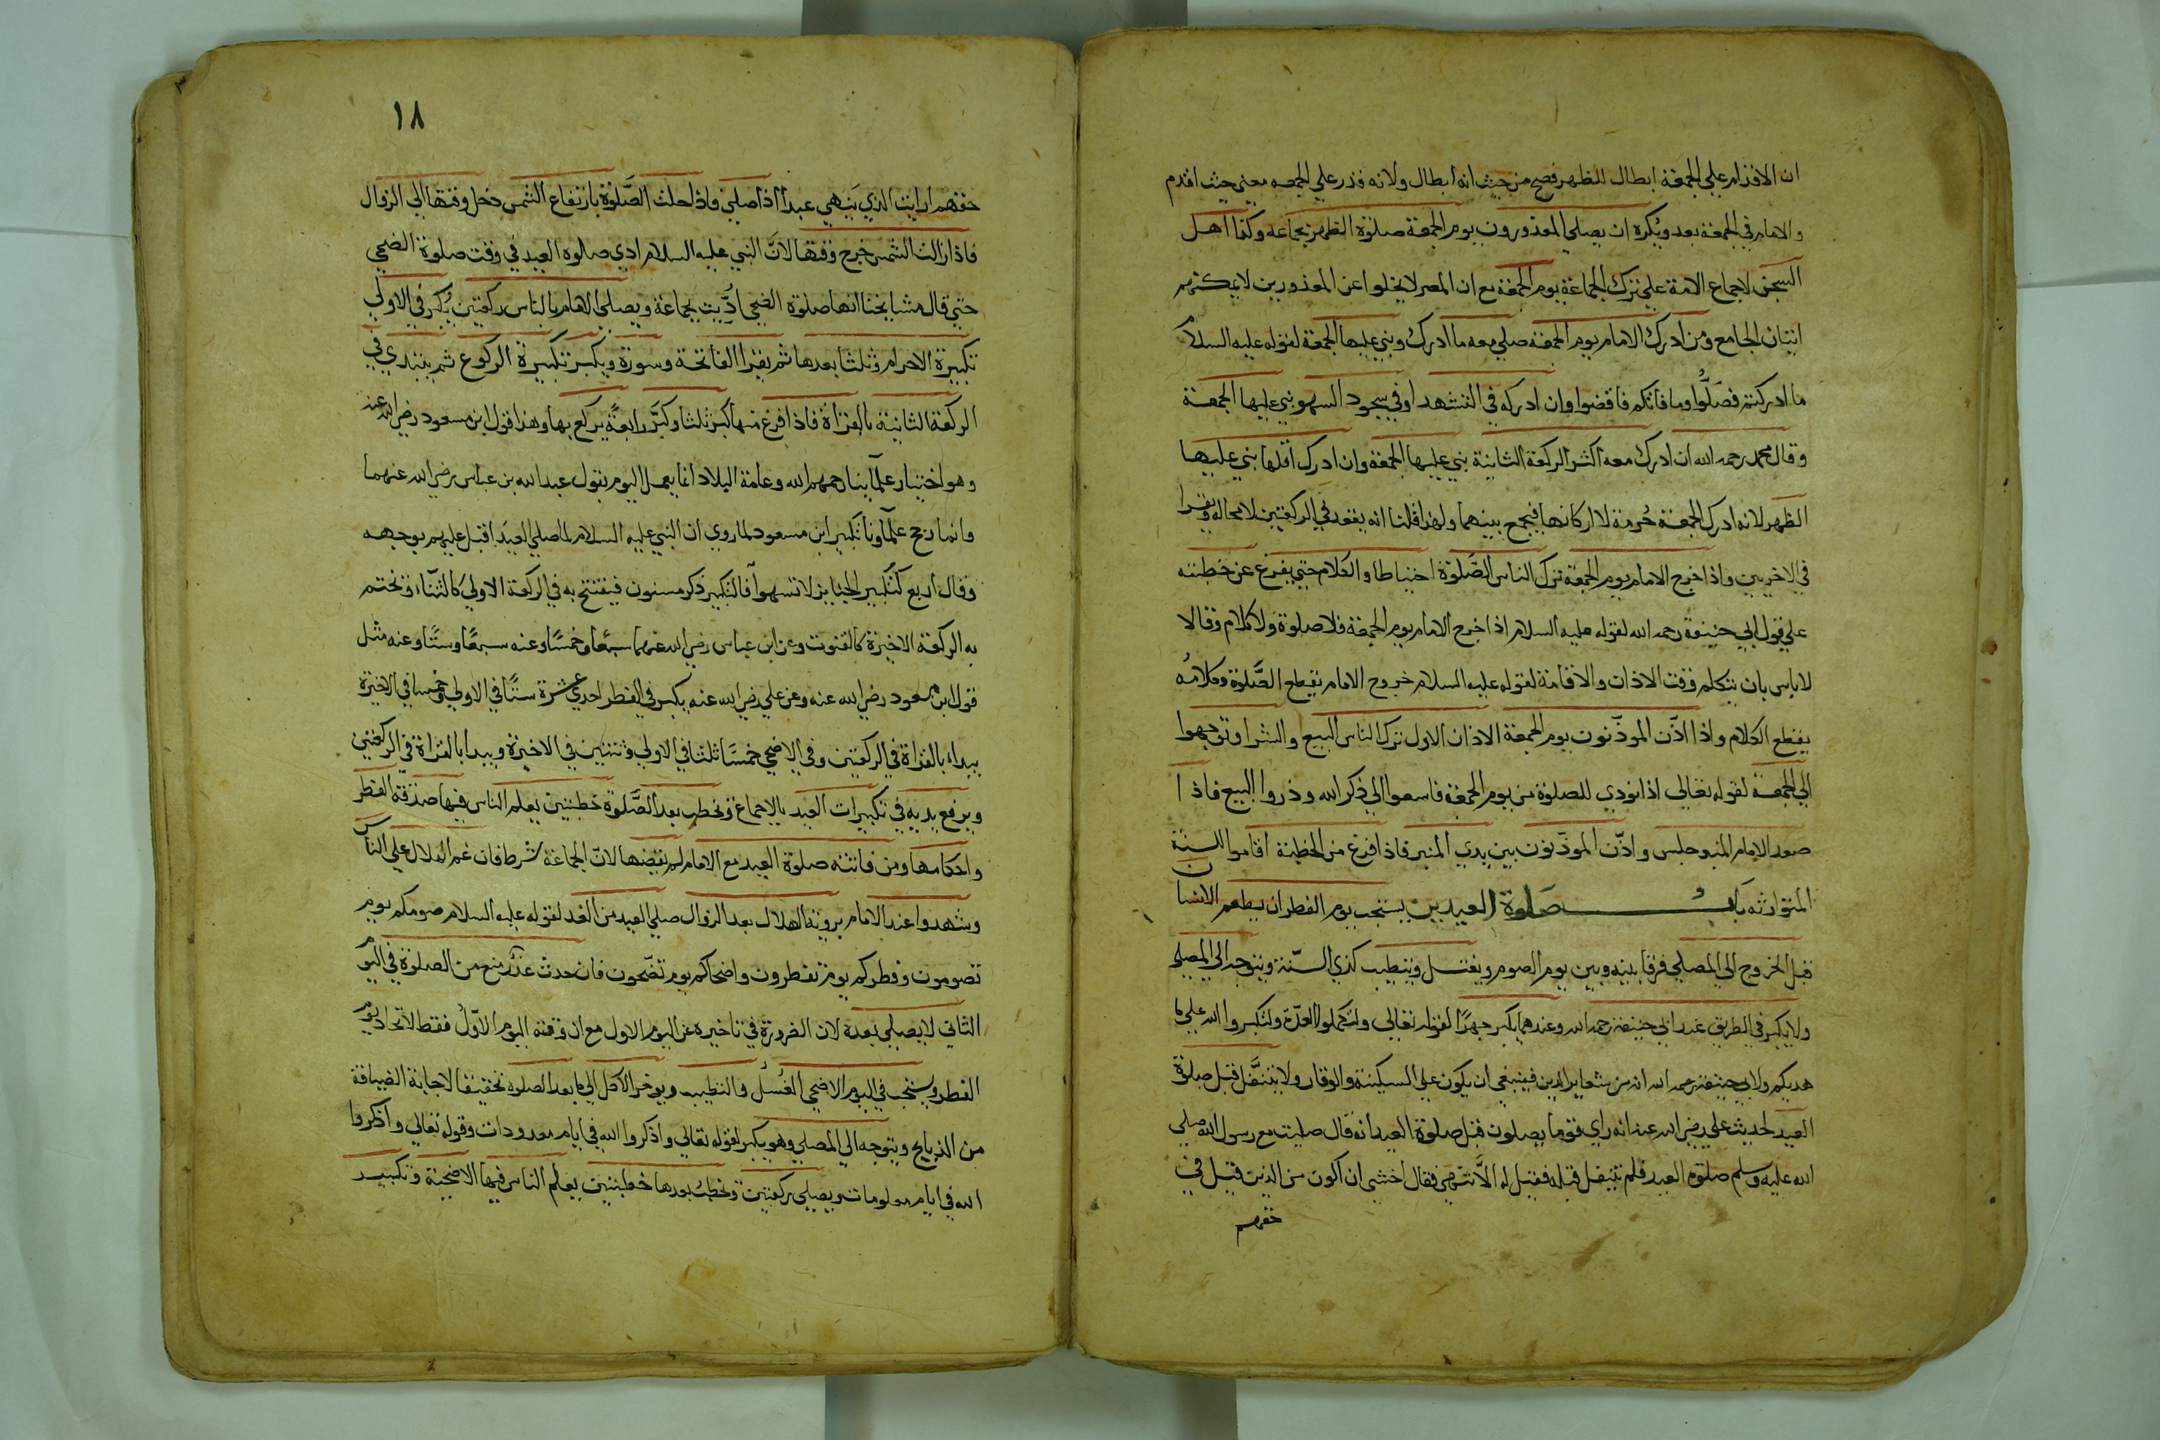 ان الاقدام علي الجمعة ابطال للظهر فصح من حيث انه ابطال ولانه قدر علي الجمعه معني حيث اقدم
والامام في الجمعة بعد ويُكره ان يصلي المعذورون يوم الجمعة صلوة الظهر بجماعة وكذا اهل
السجن لاجماع الامة علي ترك الجماعة يوم الجمعة مع ان المصر لا يخلوا عن المعذورين لا يمكنهم
اتيان الجامع ومن ادرك الامام يوم الجمعة صلي معه ما ادرك وبني عليها الجمعة لقوله عليه السلام
ما ادركتم فصَلُّوا وما فاتكم فاقضوا وان ادركه في التشهد او في سجود السهو بني عليها الجمعة
وقال محمد رحمه الله ان ادرك معه اكثر الركعة الثانية بني عليها الجمعة وان ادرك اقلها بني عليها
الظهر لانه ادرك الجمعة حُرمة لا اركانها فيجمع بينهما ولهذا قلنا انه يقعد في الركعتين لا محاله ويقرا
في الاخريين واذا خرج الامام يوم الجمعة ترك الناس الصَّلوة احتياطا والكلام حتي يفرغ عن خطبته
علي قول ابي حنيفة رحمه الله لقوله عليه السلام اذا خرج الامام يوم الجمعة فلا صلوة ولا كلام وقالا
لا باس بان يتكلم وقت الاذان والاقامة لقوله عليه السلام خروج الامام يقطع الصَّلوة وكلامُه
يقطع الكلام واذا اذّن الموذّنون يوم الجمعة الاذان الاول ترك الناس البيع والشرا وتوجهوا
الي الجمعة لقوله تعالي اذا نودي للصلوة من يوم الجمعة فاسعوا الي ذكر الله وذروا البيع فاذا
صعد الامام المنبر وجلس واذّن الموذّنون بين يدي المنبر فاذا فرغ من الخطبة اقاموا السنة
المتوارثه باب صَلوة العيدين يستحب يوم الفطر ان يطعم الانسان
قبل الخروج الي المصلي فرقا بينه وبين يوم الصوم ويغتسل ويتطيب كذي السّنة ويتوجه الي المصلي
ولا يكبر في الطريق عند ابي حنيفة رحمه الله وعندهما يكبر جهرًا لقوله تعالي ولتكملوا العدّة ولتكبروا الله علي ما
هديكم ولابي حنيفة رحمه الله انه من شعاير الدين فينبغي ان يكون علي السكينة والوقار ولا يتنفَّل قبل صلوة
العيد لحديث علي رضي الله عنه انه راي قوما يصلون قبل صلوة العيد انه قال صليت مع رسول الله صلي
الله عليه وسلم صلوة العيد فلم يتنفل قبله فقيل له الا تنتهي فقال اخشي ان اكون من الذين قيل في
حقهم
١٨
حقهم ارايت الذي يَنهي عبدا اذا صلي فاذا حلت الصَّلوة بارتفاع الشمس دخل وقتها الي الزوال
فاذا زالت الشمس خرج وقتها لانَّ النبي عليه السلام ادي صلوه العيد في وقت صلوة الضحي
حتي قال مشايخنا انها صلوة الضحي اُدِّيت بجماعة ويصلي الامام بالناس ركعتين يُكبر في الاولي
تكبيرة الاحرام وثلثا بعدها ثم يقرا الفاتحة وسورة ويكبر تكبيرة الركوع ثم يبتدي في
الركعة الثانية بالقراة فاذا فرغ منها كبر ثلثا وكبَّر رابعةً يركع بها وهذا قول ابن مسعود رضي الله عنه
وهو اختيار علمآينا رحمهم الله وعامة البلاد انما يعمل اليوم بقول عبد الله بن عباس رضي الله عنهما
وانما رجح علمآونا تكبير ابن مسعود لما روي ان النبي عليه السلام لما صلي العيدَ اقبل عليهم بوجهه
وقال اربع كتكبير الجنايز لا تسهوا فالتكبير ذكر مسنون فيفتتح به في الركعة الاولي كالثنآء وتختم
به الركعة الاخيرة كالقنوت وعن ابن عباس رضي الله عنهما سبعًا وخمسًا وعنه سبعًا وستًّا وعنه مثل
قول ابن مسعود رضي الله عنه وعن علي رضي الله عنه يكبر في الفطر احدي عشرة ستًّا في الاولي وخمسا في الاخيرة
يبداء بالقراة في الركعتين وفي الاضحي خمسًا ثلثا في الاولي وثنتين في الاخيرة ويبدا بالقراة في الركعتين
ويرفع يديه في تكبيرات العيد بالاجماع وتخطب بعد الصَّلوة خطبتين يعلم الناس فيها صدقة الفطر
واحكامها ومن فاتته صلوة العيد مع الامام لم يقضها لانّ الجماعة شرط فان غم الهلال علي الناس
وشهدوا عند الامام بروية الهلال بعد الزوال صلي العيد من الغد لقوله عليه السلام صومكم يوم
تصومون وفطركم يوم تفطرون واضحاكم يوم تضّحون فان حدث عذر منع من الصلوة في اليوم
الثاني لا يصلي بعده لان الضرورة في تاخيره عن اليوم الاول مع ان وقته اليوم الاوّلُ فقط لاتحاد يوم
الفطر ويستحب في اليوم الاضحي الغُسلُ والتطيب ويوخر الاكل الي ما بعد الصلوه تحقيقا لاجابة الضيافة
من الذبايح ويتوجه الي المصلي وهو يكبر لقوله تعالي واذكروا الله في ايام معدودات وقوله تعالي واذكروا
الله في ايام معلومات ويصلي ركعتين وتخطب بعدها خطبتين يعلم الناس فيها الاضحية وتكبير